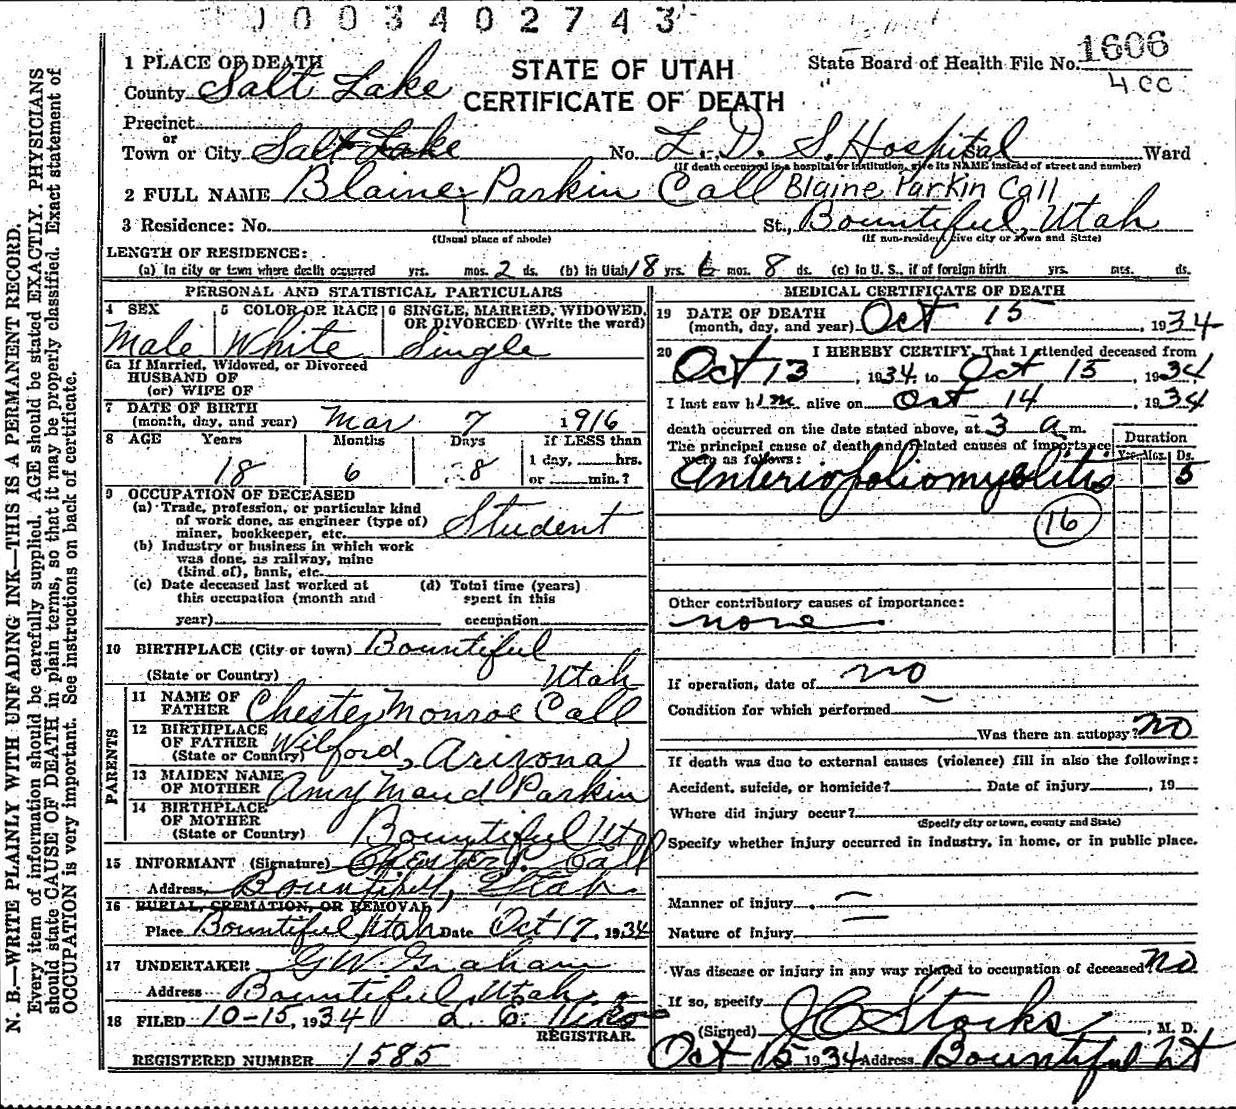 1003402743
1606
4 cc
STATE OF UTAH
CERTIFICATE OF DEATH
State Board of Health File No.
1 PLACE OF DEATH
County Salt Lake
Precinct
or
Town or City Salt Lake No. L. D. S. Hospital St. Ward
(If death occurred in a hospital or institution, give its NAME instead of street and number)
2 FULL NAME Blaine Parkin Call Blaine Parkin Call
3 Residence: No. St., Bountiful, Utah
(Usual place of abode) (If non-resident give city or town and State)
LENGTH OF RESIDENCE:
(a) In city or town where death occurred yrs. mos. 2 ds. (b) In Utah 18 yrs. 6 mos. 8 ds. (c) In U. S., if of foreign birth yrs. mos. ds.
PERSONAL AND STATISTICAL PARTICULARS
4 SEX 5 COLOR OR RACE 6 SINGLE, MARRIED, WIDOWED, OR DIVORCED (Write the word)
Male White Single
6a If Married, Widowed, or Divorced
HUSBAND OF
(or) WIFE OF
7 DATE OF BIRTH
(month, day, and year) Mar 7 1916
8 AGE Years Months Days If LESS than
18 6 8 1 day, hrs.
or min.?
9 OCCUPATION OF DECEASED
(a) Trade, profession, or particular kind
of work done, as engineer (type of)
miner, bookkeeper, etc. Student
(b) Industry or business in which work
was done, as railway, mine
(kind of), bank, etc.
(c) Date deceased last worked at (d) Total time (years)
this occupation (month and spent in this
year) occupation
10 BIRTHPLACE (City or town) Bountiful
(State or Country) Utah
PARENTS
11 NAME OF
FATHER Chester Monroe Call
12 BIRTHPLACE
OF FATHER Wilford, Arizona
(State or Country)
13 MAIDEN NAME
OF MOTHER Amy Maud Parkin
14 BIRTHPLACE
OF MOTHER
(State or Country) Bountiful Utah
15 INFORMANT (Signature) Chester Call
Address, Bountiful, Utah.
16 BURIAL, CREMATION, OR REMOVAL
Place Bountiful Utah Date Oct 17, 1934
17 UNDERTAKER G W Graham
Address Bountiful, Utah
18 FILED 10-15, 1934
REGISTRAR.
REGISTERED NUMBER 1585
MEDICAL CERTIFICATE OF DEATH
19 DATE OF DEATH
(month, day, and year) Oct 15, 1934
20 I HEREBY CERTIFY, That I attended deceased from
Oct 13, 1934 to Oct 15, 1934
I last saw him alive on Oct 14, 1934
death occurred on the date stated above, at 3 a m.
The principal cause of death and related causes of importance
were as follows:
Duration
Yrs. Mos. Ds.
Anteriopoliomyelitis 5
16
Other contributory causes of importance:
none
If operation, date of no
Condition for which performed
Was there an autopsy? no
If death was due to external causes (violence) fill in also the following:
Accident, suicide, or homicide? Date of injury, 19
Where did injury occur?
(Specify city or town, county and State)
Specify whether injury occurred in industry, in home, or in public place.
Manner of injury
Nature of injury
Was disease or injury in any way related to occupation of deceased? no
If so, specify
(Signed) J C Stocks, M. D.
Oct 15 1934 Address Bountiful Ut
N. B.—WRITE PLAINLY WITH UNFADING INK—THIS IS A PERMANENT RECORD.
Every item of information should be carefully supplied. AGE should be stated EXACTLY. PHYSICIANS
should state CAUSE OF DEATH in plain terms, so that it may be properly classified. Exact statement of
OCCUPATION is very important. See instructions on back of certificate.